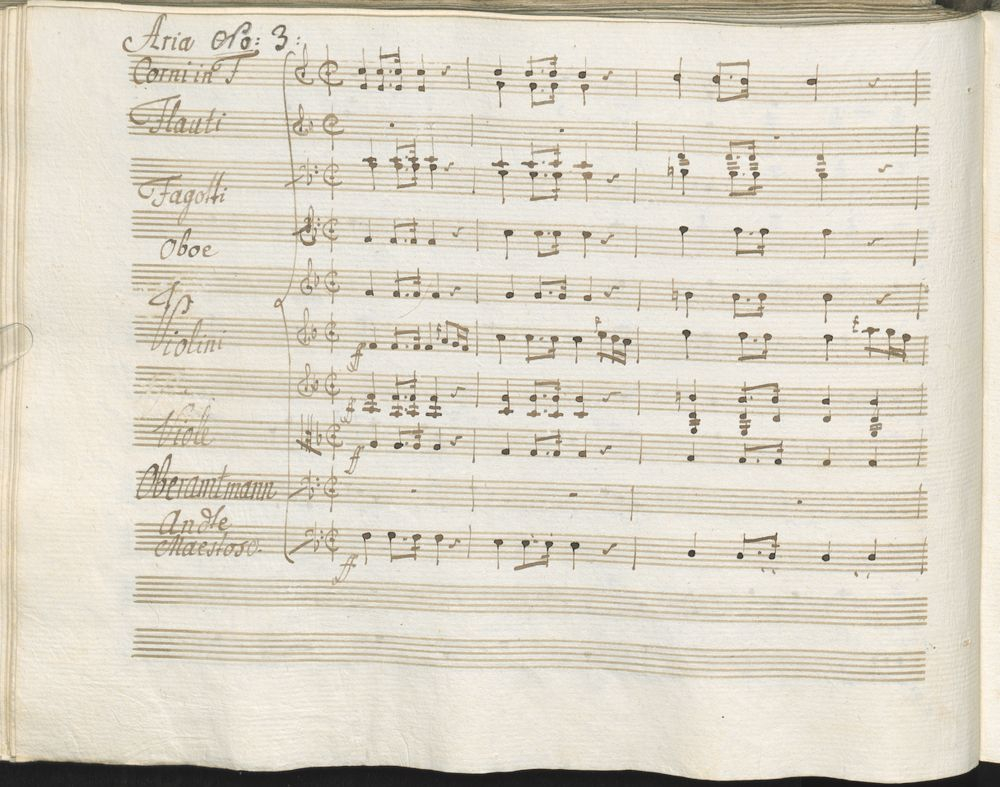 Aria No: 3:
Corni in F
Flauti
Fagotti
Oboe
Violini
ff
ff
Viole
ff
Oberamtmann
Andte
Maestoso.
ff